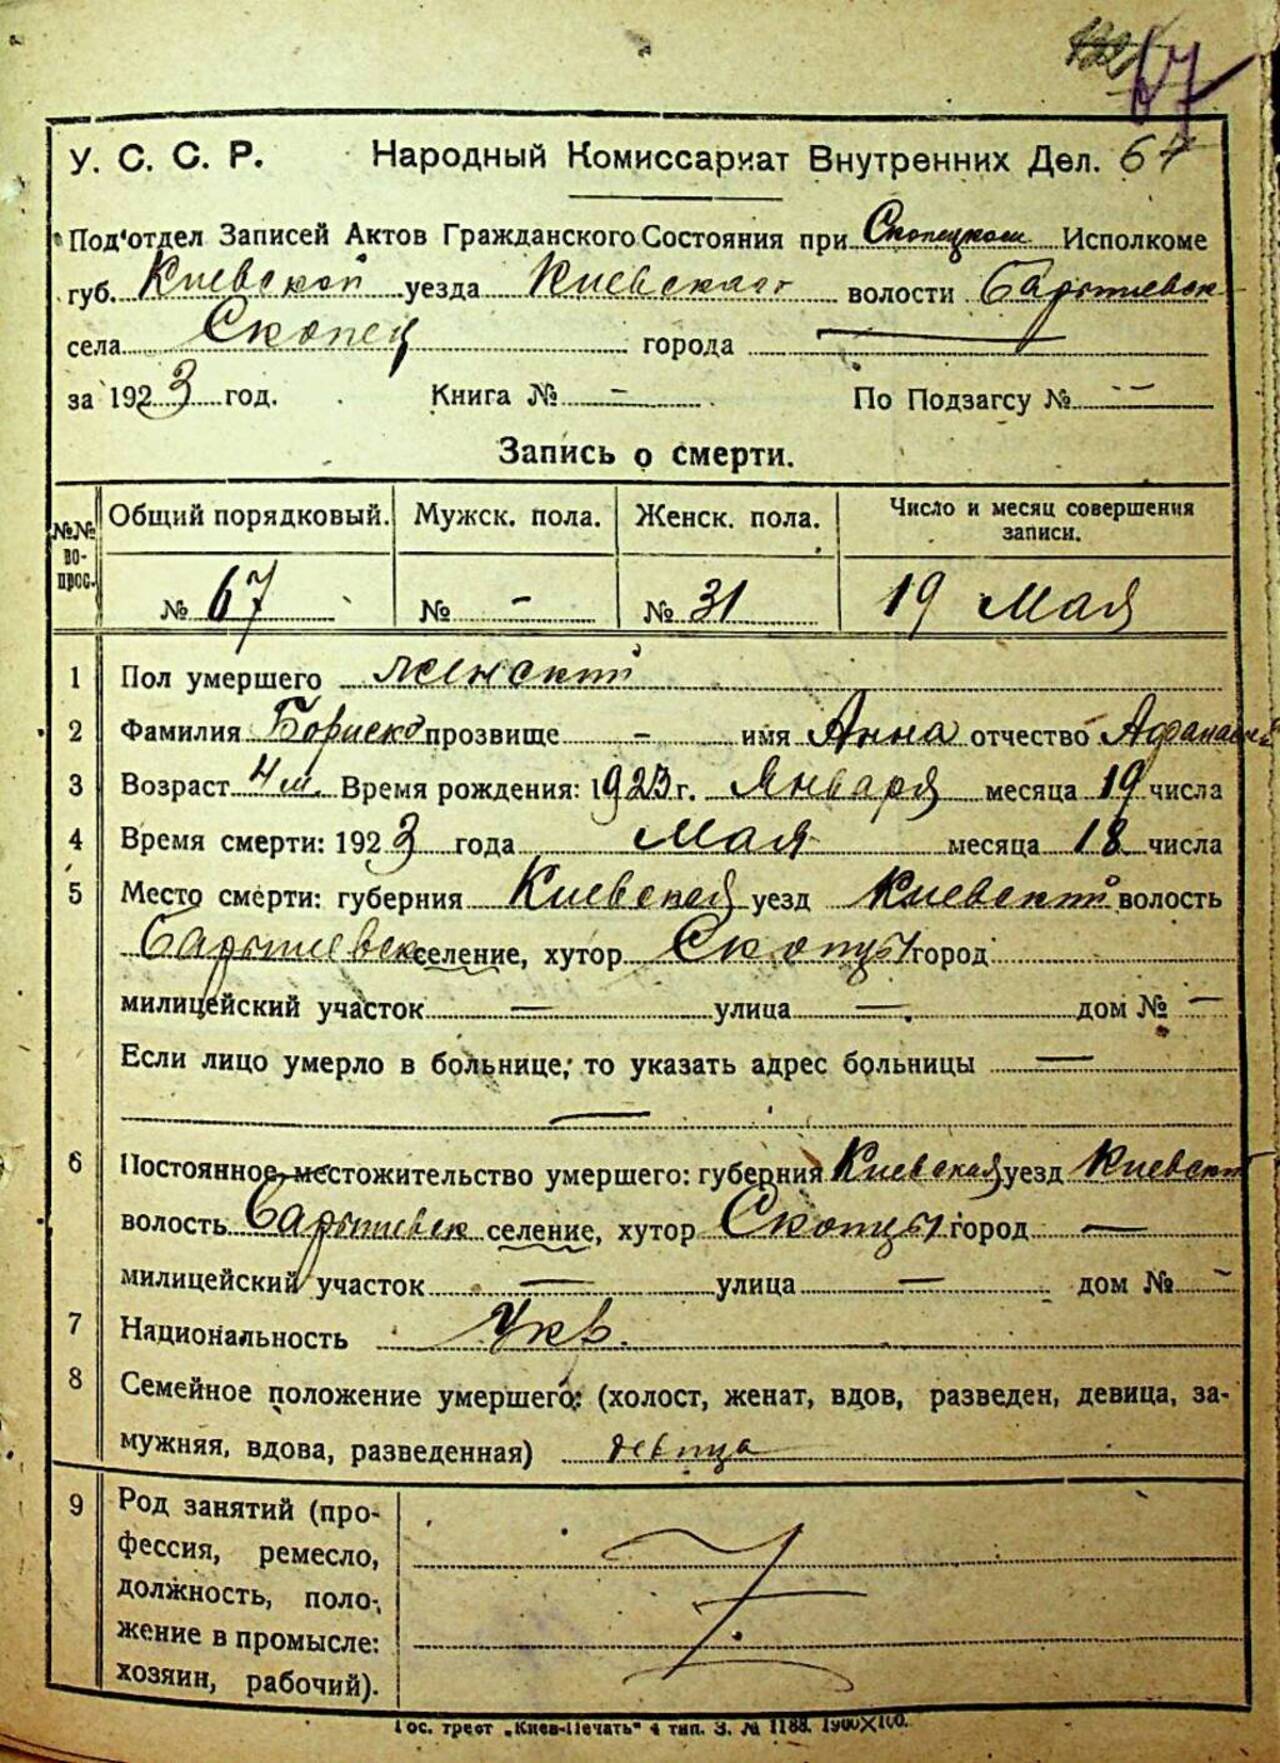 67
У. С. С. Р. Народный Комиссариат Внутренних Дел. 67
Под'отдел Записей Актов Гражданского Состояния при Скопецком Исполкоме
губ. Киевской уезда Киевскаго волости Барышевск
села Скопец города —
за 1923 год. Книга № — По Подзагсу № —
Запись о смерти.
№№ вопрос. Общий порядковый. Мужск. пола. Женск. пола. Число и месяц совершения записи.
№ 67 № - № 31 19 Мая
1 Пол умершего женский
2 Фамилия Бориско прозвище - имя Анна отчество Афанасий
3 Возраст 4 м. Время рождения: 1923 г. Января месяца 19 числа
4 Время смерти: 1923 года Мая месяца 18 числа
5 Место смерти: губерния Киевская уезд Киевский волость
Барышевск селение, хутор Скопцы город
милицейский участок — улица — дом № —
Если лицо умерло в больнице, то указать адрес больницы —
—
6 Постоянное местожительство умершего: губерния Киевская уезд Киевский
волость Барышевск селение, хутор Скопцы город —
милицейский участок — улица — дом № —
7 Национальность Укр.
8 Семейное положение умершего: (холост, женат, вдов, разведен, девица, за-
мужняя, вдова, разведенная) девица
9 Род занятий (про-
фессия, ремесло,
должность, поло-
жение в промысле:
хозяин, рабочий).
Гос. трест „Киев-Печать" 4 тип. З. № 1188. 1900×100.